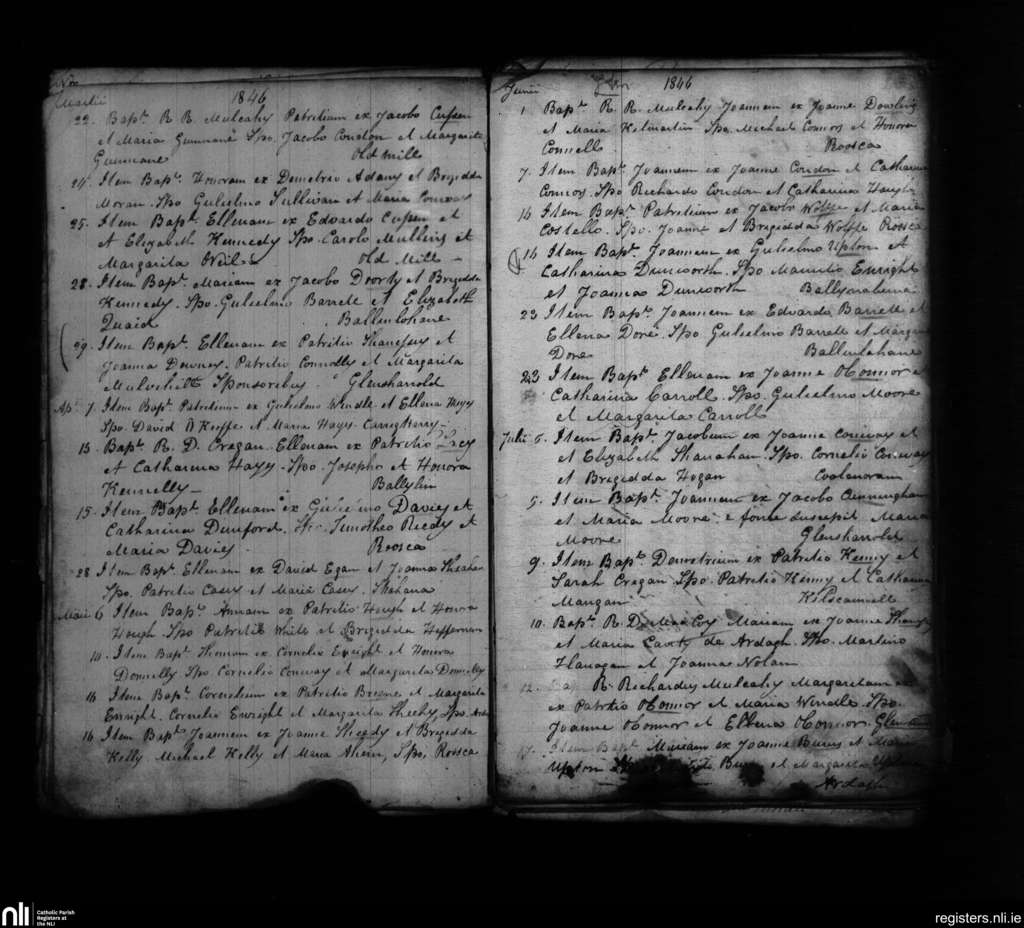 Martii
1846
22. Bapt. R. R. Mulcahy Patritium ex Jacobo Cussen
et Maria Guinnane Spo. Jacobo Condon et Margarita
Guinnane Old Mill
24. Item Bapt. Honoram ex Demetrio Adams et Brigidda
Moran. Spo Gulielmo Sullivan et Maria Conway
25. Item Bapt. Ellenam ex Edvardo Cussen et
et Elizabeth Kennedy Spo. Carolo Mullins et
Margarita Neil Old Mill
28. Item Bapt. Mariam ex Jacobo Doorly et Brigidda
Kennedy. Spo. Gulielmo Barrett et Elizabeth
Quaid Ballinlohane
29. Item Bapt. Ellenam ex Patritio et
Joanna Downey. Patritio Connolly et Margarita
Sponsoribus Glensharrold
Ap. 7. Item Bapt. Patritium ex Gulielmo Windle et Ellena Hays
Spo. David O Keeffe et Maria Hays. Carrigkerry
13. Bapt. R. D. Cregan. Ellenam ex Patritio Lacy
et Catharina Hayy. Spo. Josepho et Honora
Kennelly Ballylin
15. Item Bapt. Ellenam ex Davies et
Catharina Dunford. Timotheo Reedy et
Maria Davies. Roosca
28 Item Bapt. Ellenam ex David Egan et Joanna
Spo. Patritio Casey et Maria Casey. Shahana
Maii 6 Item Bapt. Annam ex Patritio Hough et Honora
Hough Spo Patritio White et Brigidda Heffernan
10. Item Bapt. ex Cornelio Enright et Honora
Donnelly Spo. Cornelio Conway et Margarita Donnelly
16 Item Bapt. Cornelium ex Patritio et Margarita
Enright. Cornelio Enright et Margarita Sheehy, Spo.
16. Item Bapt. Joannem ex Joanne Sheedy et Brigidda
Kelly Michael Kelly et Maria Ahern, Spo. Roosca
Junii
1846
1 Bapt. R. R. Mulcahy Joannem ex Joanne Dowling
et Maria Kilmartin Spo. Michael Connors et Honora
Connell Roosca
7. Item Bapt. Joannem ex Joanne Condon et Catharina
Connors. Spo Richardo Condon et Catharina
14 Item Bapt. Patritium ex Jacobo Wolfe et Maria
Costello. Spo. Joanne et Brigidda Wolfe Roosca
14 Item Bapt. Joannem ex Gulielmo Upton et
Catharina Dunworth. Spo Mauritio Enright
et Joanna Dunworth
23 Item Bapt. Joannem ex Edvardo Barrett et
Ellena Dore. Spo Gulielmo Barrett et Margari
Dore Ballinlohane
23 Item Bapt. Ellenam ex Joanne OConnor et
Catharina Carroll. Spo. Gulielmo Moore
et Margarita Carroll
Julii 5. Item Bapt. Jacobum ex Joanne Conway et
et Elizabeth Shanahan. Spo. Cornelio Conway
et Brigidda Hogan Coolenoran
5. Item Bapt. Joannem ex Jacobo Cunningham
et Maria Moore e fonte suscepit Maria
Moore Glensharrold
9. Item Bapt. Demetrium ex Patritio Kenny et
Sarah Cregan. Spo. Patritio Kenny et Catharina
Mangan Kilscannell
10. Bapt. R. D. Mac Coy Mariam ex Joanne
et Maria de Ardagh. Spo. Martino
Flanagan et Joanna Nolan
12. R. Richardus Mulcahy Margaritam
ex Patritio OConnor et Maria Windle. Spo.
Joanne OConnor et Ellena OConnor.
17. Item Bapt. Mariam ex Joanne Burns et Maria
Upton et Margarita
Ardagh
nli
Catholic Parish
Registers at
the NLI
registers.nli.ie